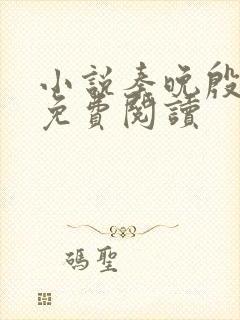 小說秦晚殷
免費閱讀
碼聖